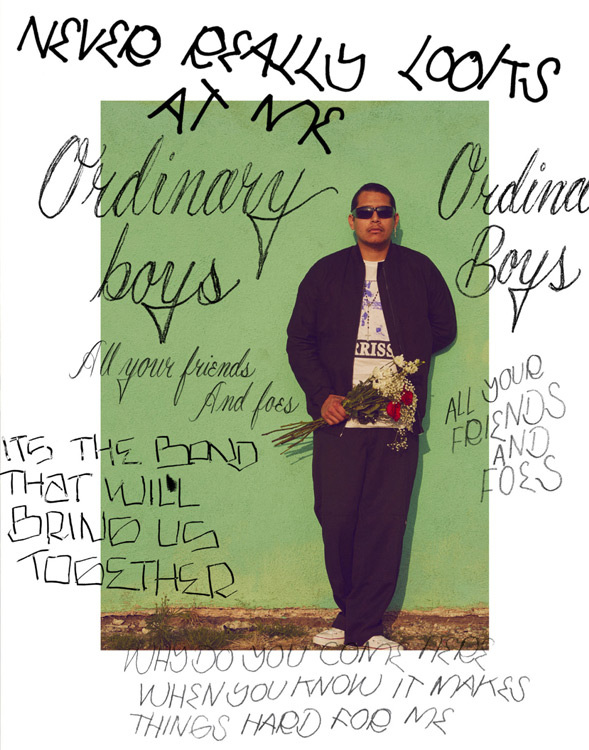 NEVER REALLY LOOKS
AT ME
Ordinary
boys
Ordina
Boys
All your friends
And foes
ALL YOUR
FRIENDS
AND
FOES
ITS THE BOND
THAT WILL
BRING US
TOGETHER
RRISS
WHY DO YOU COME HERE
WHEN YOU KNOW IT MAKES
THINGS HARD FOR ME